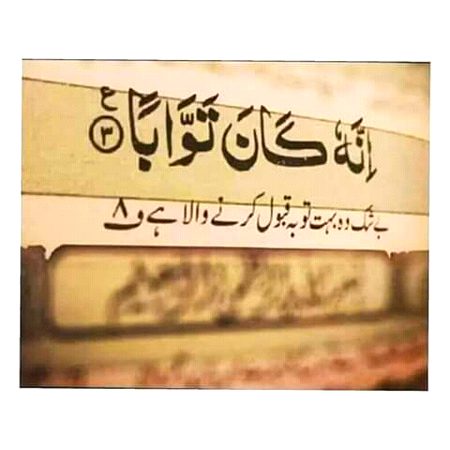 اِنَّهٗ كَانَ تَوَّابًا ۝٣ ع
بے شک وہ بہت توبہ قبول کرنے والا ہے ف ۸